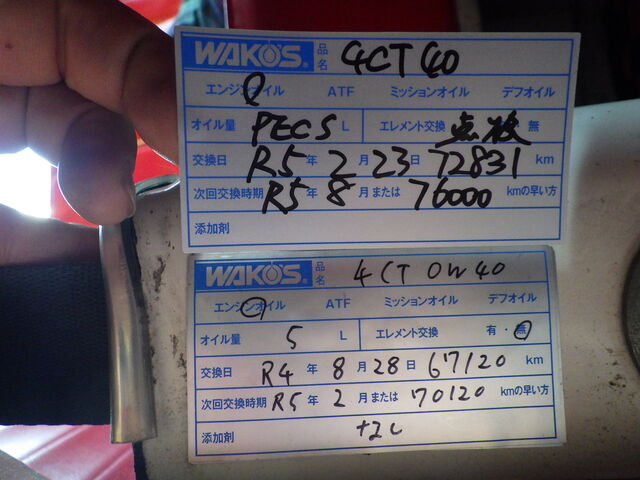 WAKO'S 品名 4CT 40
エンジンオイル ATF ミッションオイル デフオイル
オイル量 PECS L エレメント交換 点検 無
交換日 R5年 2月 23日 72831 km
次回交換時期 R5年 8月または 76000 kmの早い方
添加剤
WAKO'S 品名 4CT 0W40
エンジンオイル ATF ミッションオイル デフオイル
オイル量 5 L エレメント交換 有・無
交換日 R4年 8月 28日 67120 km
次回交換時期 R5年 2月または 70120 kmの早い方
添加剤